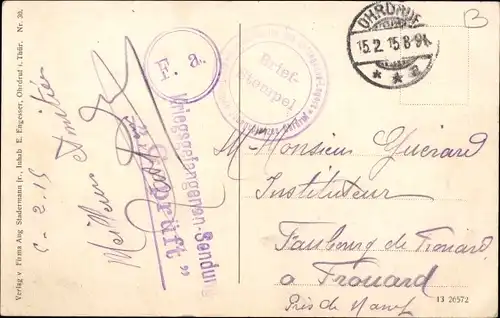 Verlag v. Firma Aug Stadermann jr., Inhab E. Engesser, Ohrdruf i. Thür. Nr. 30.
6-2-15
Meilleures Amitiés
F. a.
Kriegsgefangenen-Sendung
"Geprüft"
Brief-
Stempel
OHRDRUF
15.2.15.8-9V.
* * a
B
M- Monsieur Guérard
Instituteur
Faubourg de Frouard
à Frouard
Près de Nancy
13 26572